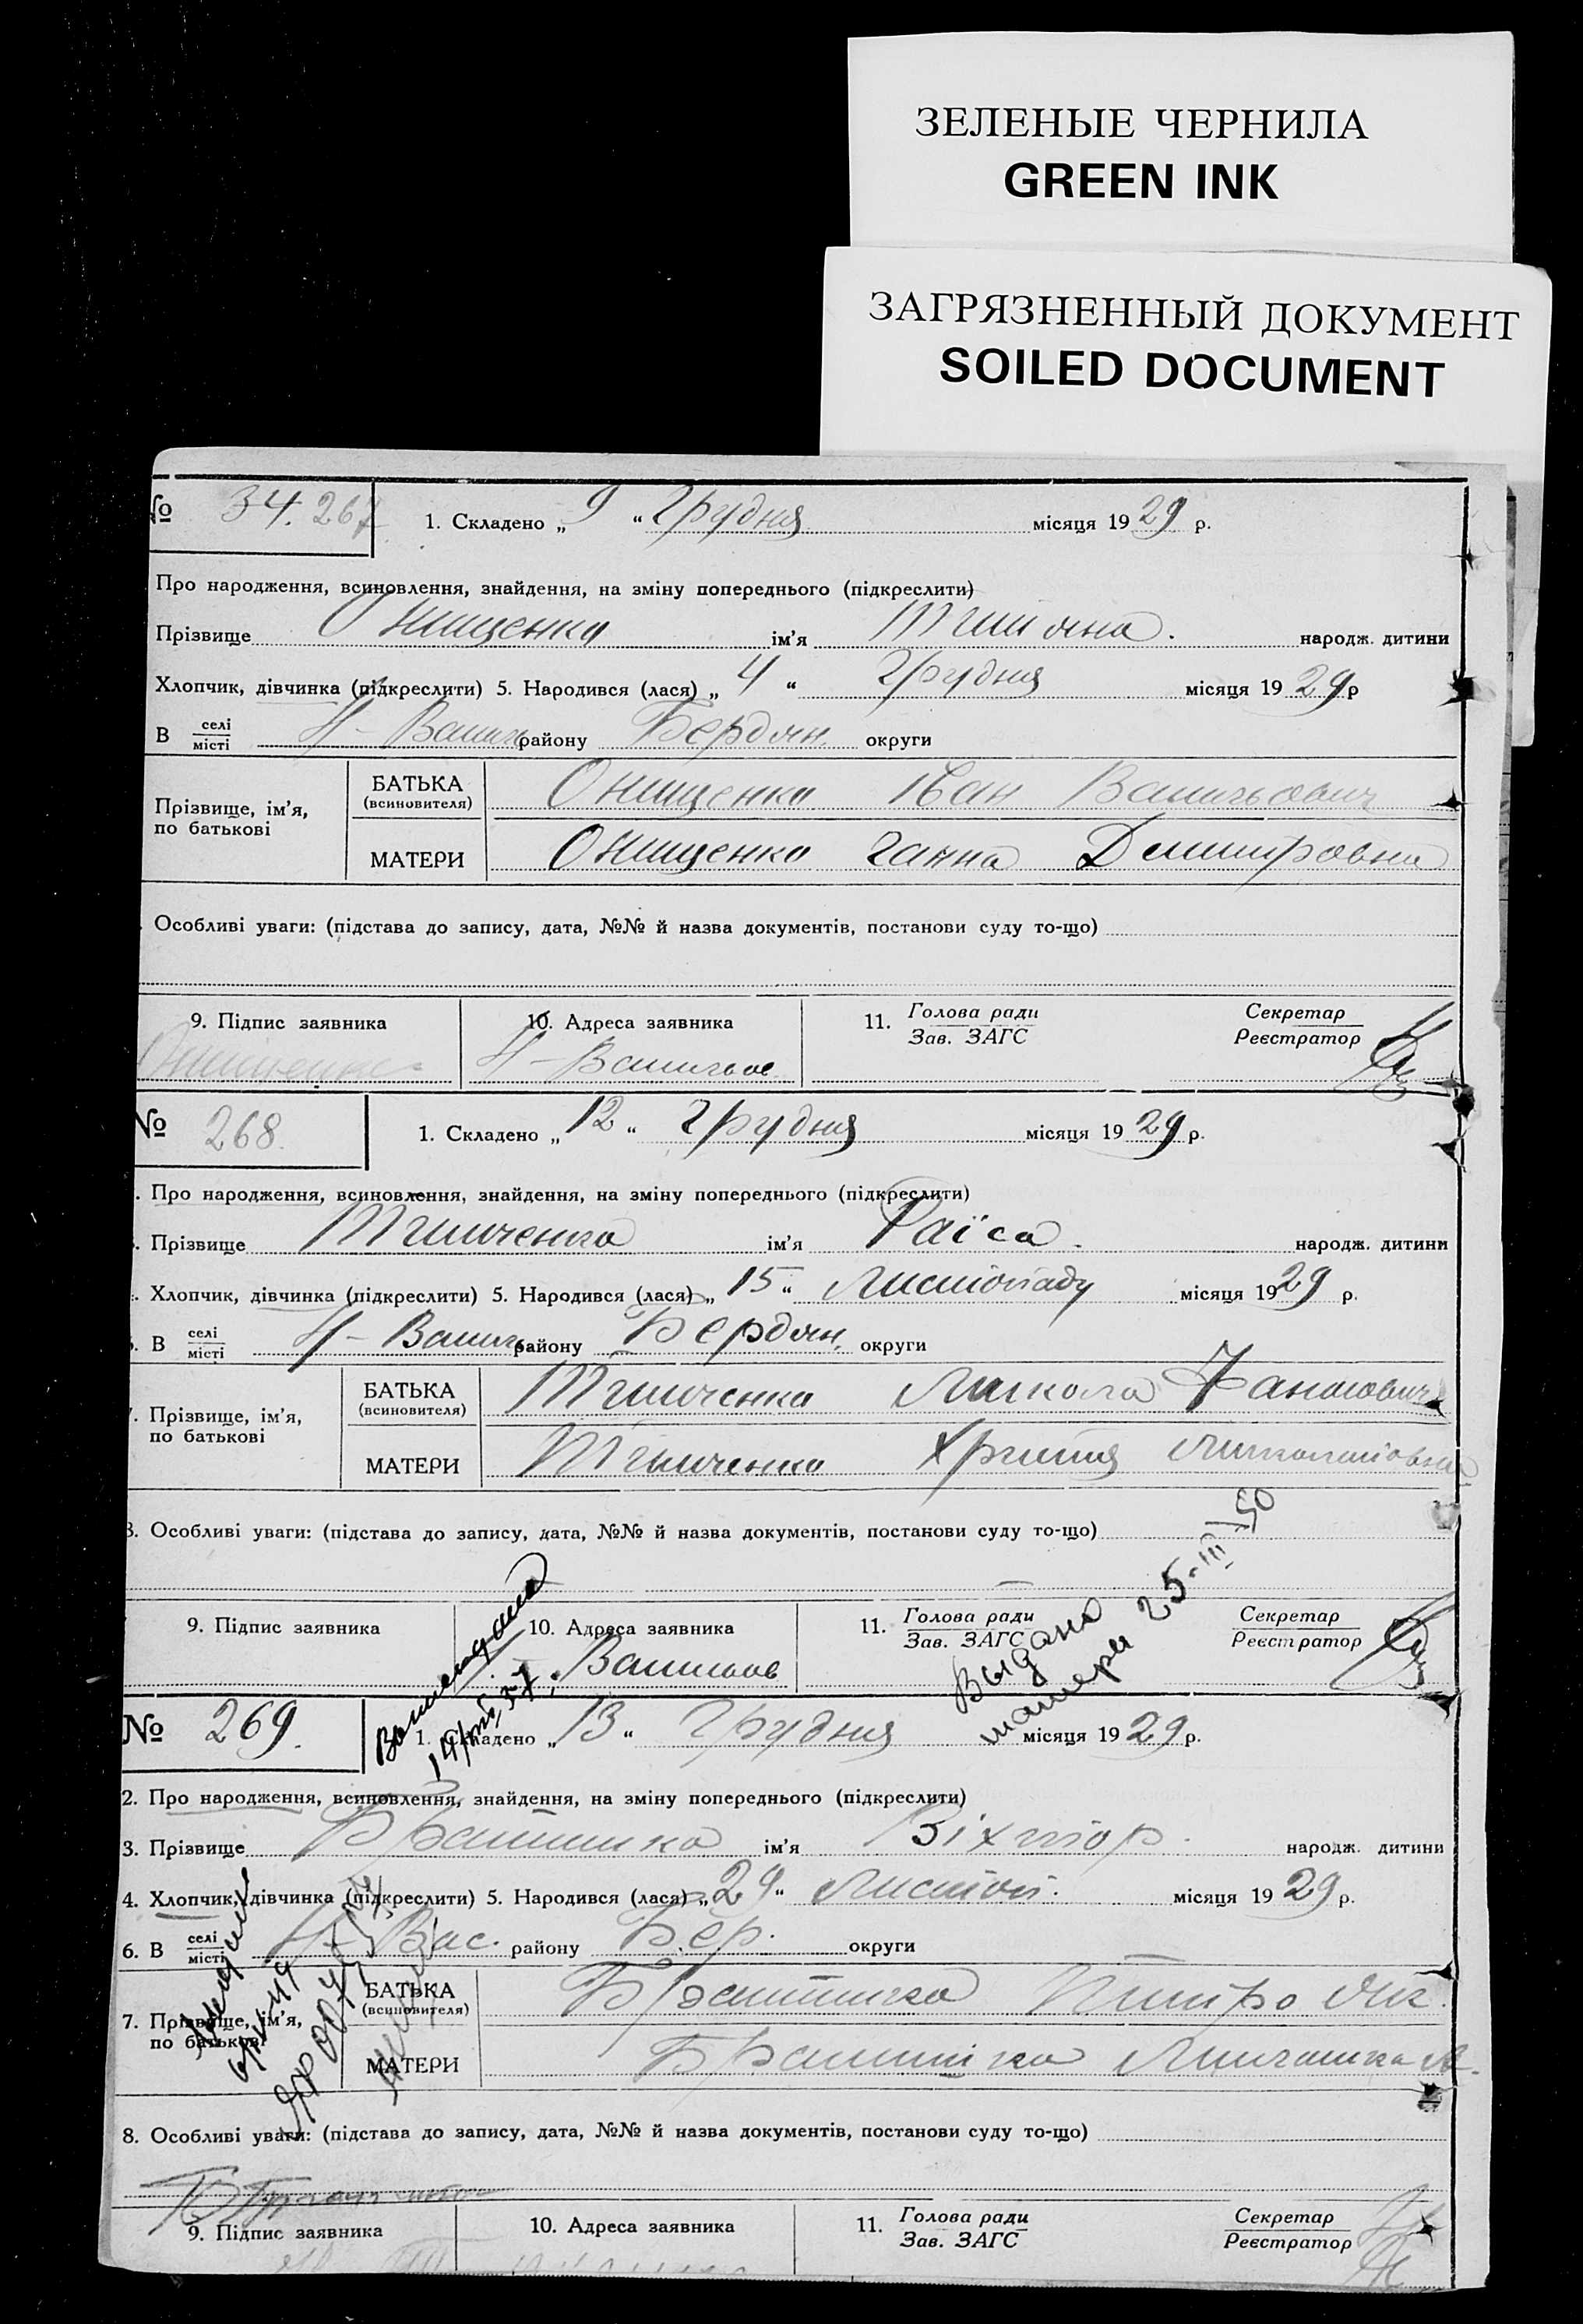 ЗЕЛЕНЫЕ ЧЕРНИЛА
GREEN INK
ЗАГРЯЗНЕННЫЙ ДОКУМЕНТ
SOILED DOCUMENT
№ 34. 267 1. Складено „ 9 “ Грудня місяця 1929 р.
Про народження, всиновлення, знайдення, на зміну попереднього (підкреслити)
Прізвище Онищенко ім'я народж. дитини
Хлопчик, дівчинка (підкреслити) 5. Народився (лася) „ 4 “ Грудня місяця 1929 р
В селі місті Н-Василь району Бердян. округи
Прізвище, ім'я, по батькові
БАТЬКА (всиновителя) Онищенко Іван Васильович
МАТЕРИ Онищенко Ганна Дмитровна
Особливі уваги: (підстава до запису, дата, №№ й назва документів, постанови суду то-що)
9. Підпис заявника 10. Адреса заявника 11. Голова ради Зав. ЗАГС Секретар Реєстратор
Онищенко Н-Васильов
№ 268. 1. Складено „ 12 “ Грудня місяця 1929 р.
. Про народження, всиновлення, знайдення, на зміну попереднього (підкреслити)
. Прізвище ім'я Раїса. народж. дитини
. Хлопчик, дівчинка (підкреслити) 5. Народився (лася) „ 15 “ Листопаду місяця 1929 р.
. В селі місті Н-Василь району Бердян. округи
. Прізвище, ім'я, по батькові
БАТЬКА (всиновителя) Микола
МАТЕРИ Христя
8. Особливі уваги: (підстава до запису, дата, №№ й назва документів, постанови суду то-що)
Выдано матери 25-III 50
9. Підпис заявника 10. Адреса заявника 11. Голова ради Зав. ЗАГС Секретар Реєстратор
Васильов
№ 269. 1. Складено „ 13 “ Грудня місяця 1929 р.
2. Про народження, всиновлення, знайдення, на зміну попереднього (підкреслити)
3. Прізвище ім'я Віхтор. народж. дитини
4. Хлопчик, дівчинка (підкреслити) 5. Народився (лася) „ 29 “ Листоп. місяця 1929 р.
6. В селі місті Н-Вас. району Бер. округи
7. Прізвище, ім'я, по батькові
БАТЬКА (всиновителя)
МАТЕРИ
8. Особливі уваги: (підстава до запису, дата, №№ й назва документів, постанови суду то-що)
9. Підпис заявника 10. Адреса заявника 11. Голова ради Зав. ЗАГС Секретар Реєстратор